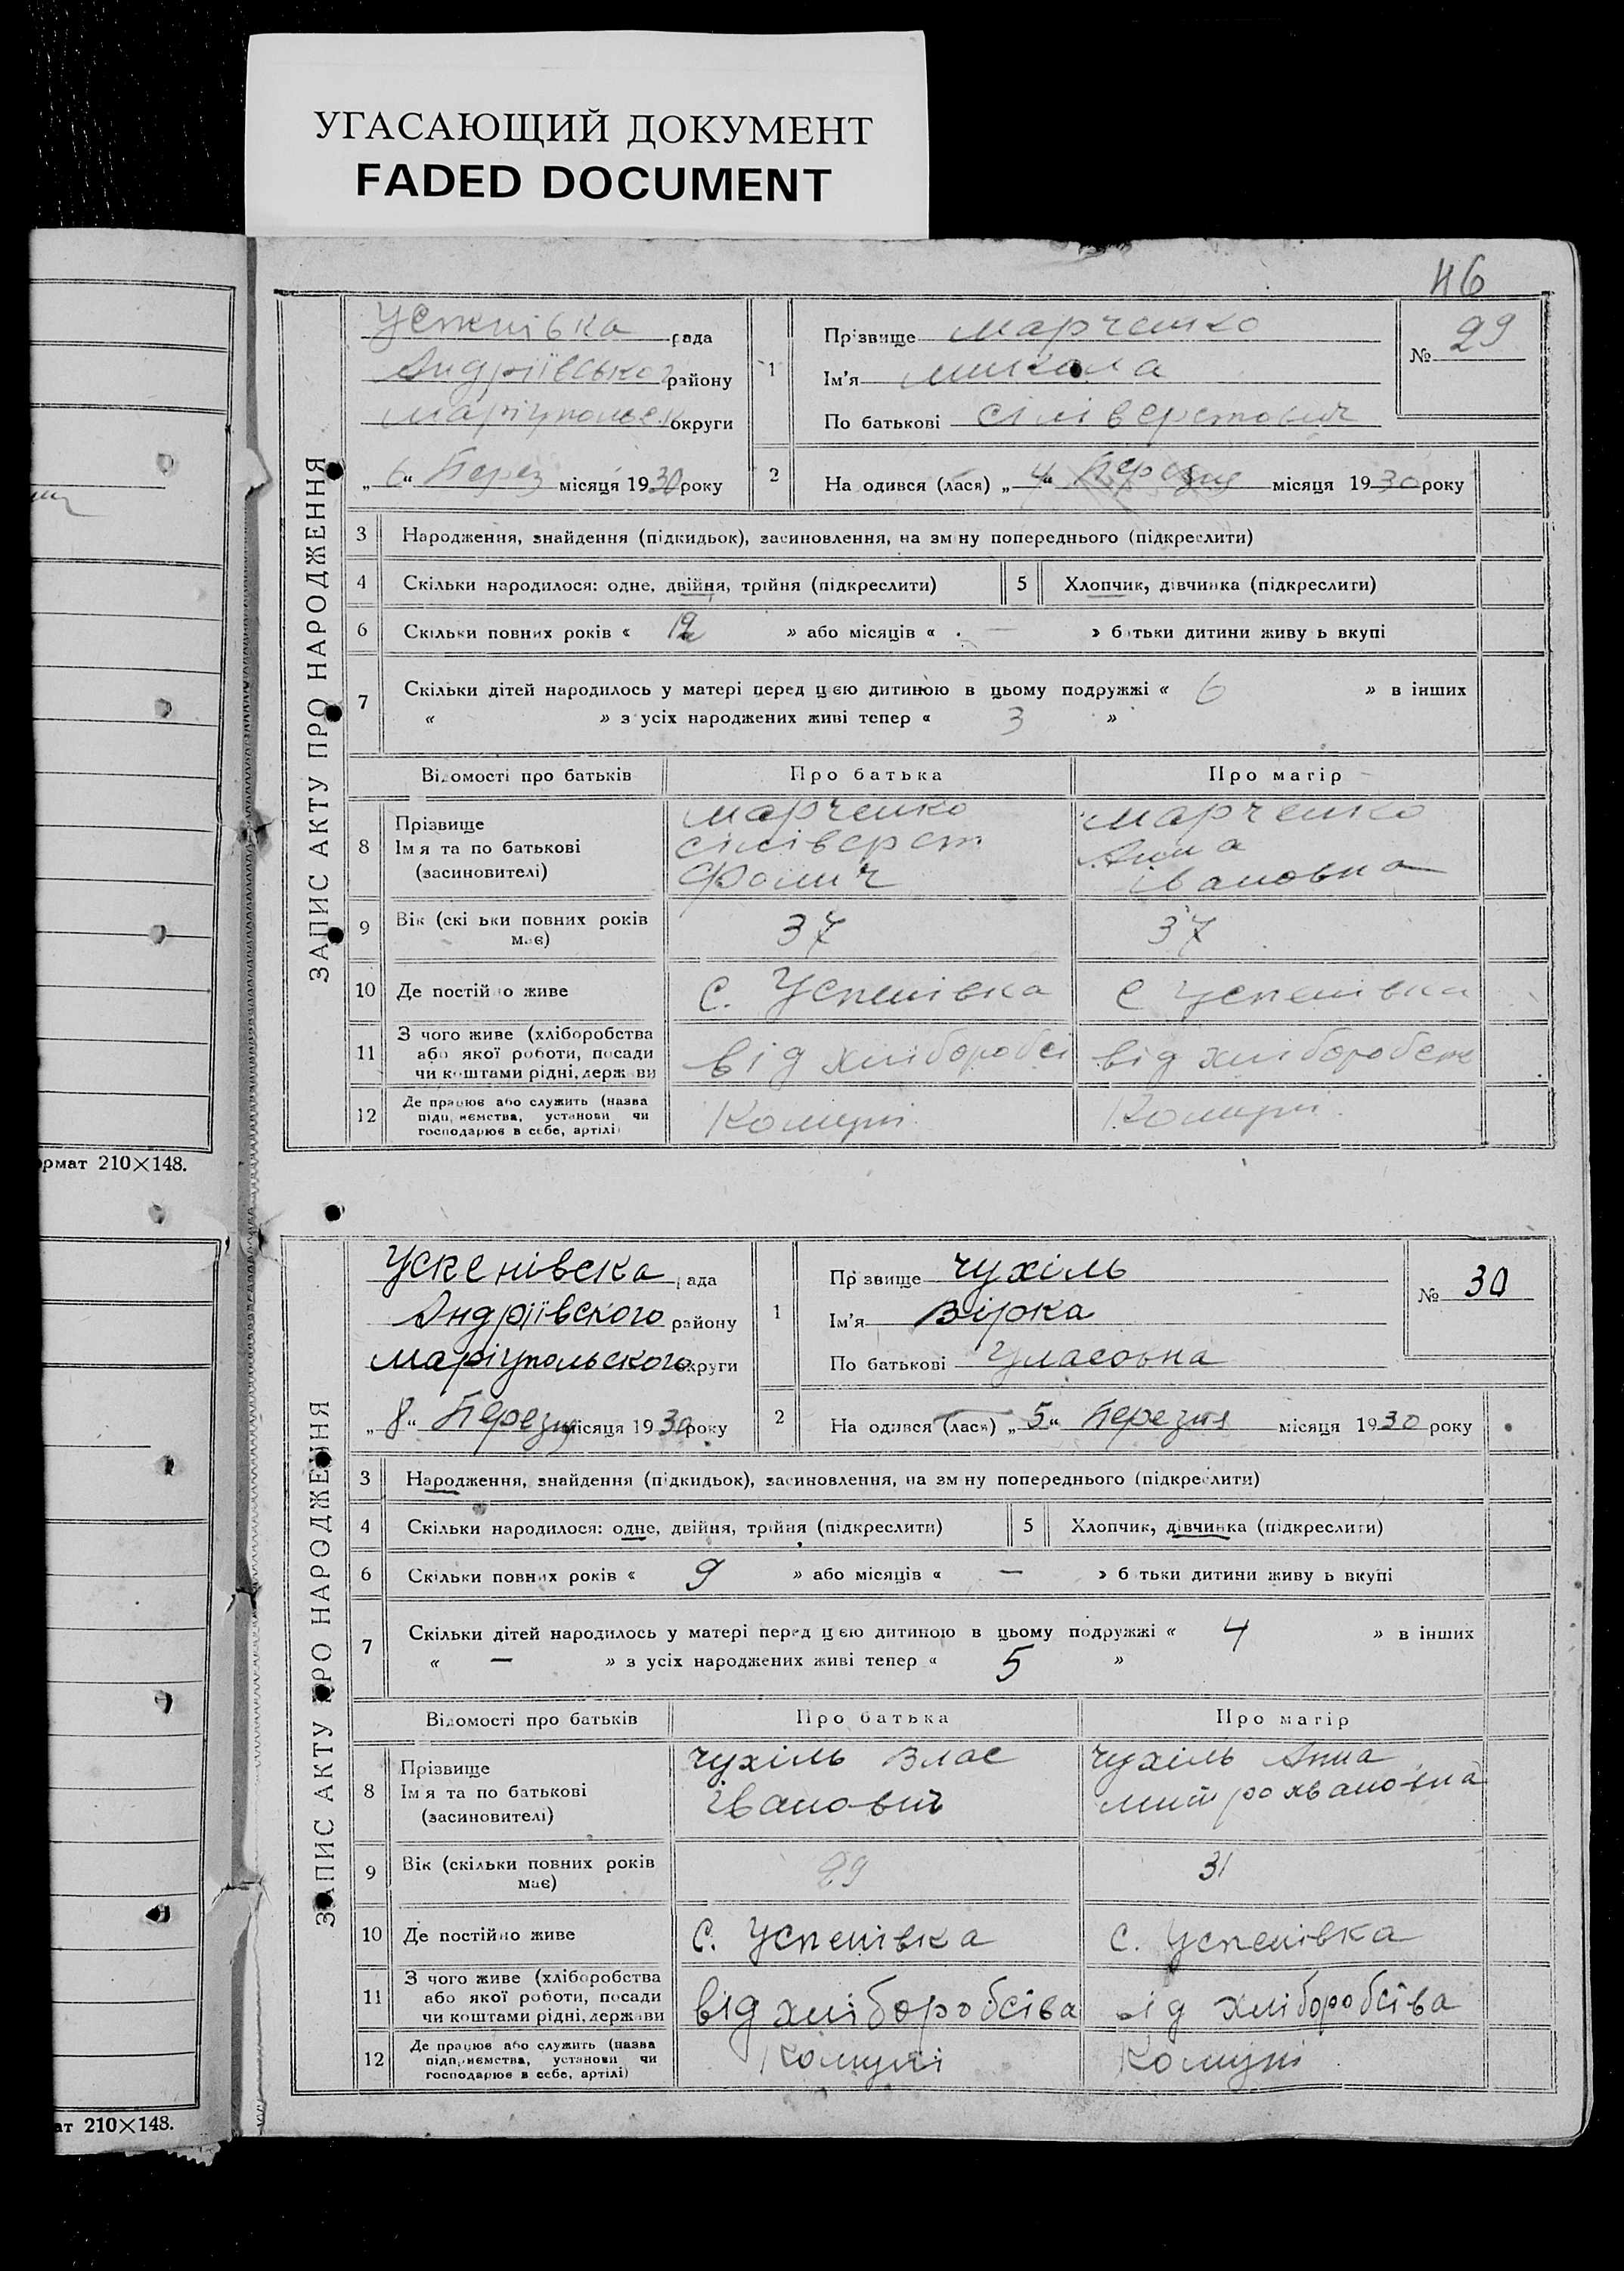 УГАСАЮЩИЙ ДОКУМЕНТ
FADED DOCUMENT
46
ЗАПИС АКТУ ПРО НАРОДЖЕННЯ
Успенівка рада
Андріївського району
Маріупольськ округи
„ 6 “ Берез місяця 1930 року
1
Прізвище Марченко
Ім'я Микола
По батькові Сіліверстович
№ 29
2 На одився (лася) „ 4 “ Березня місяця 1930 року
3 Народження, знайдення (підкидьок), засиновлення, на зміну попереднього (підкреслити)
4 Скільки народилося: одне, двійня, трійня (підкреслити) 5 Хлопчик, дівчинка (підкреслити)
6 Скільки повних років « 12 » або місяців « — » батьки дитини живу ь вкупі
7 Скільки дітей народилось у матері перед цією дитиною в цьому подружжі « 6 » в інших
« » з усіх народжених живі тепер « 3 »
Відомості про батьків Про батька Про матір
8 Прізвище Ім я та по батькові (засиновителі)
Марченко Сіліверст Фомич
Марченко Анна Івановна
9 Вік (скі ьки повних років має) 37 37
10 Де постійно живе с. Успенівка с Успенівка
11 З чого живе (хліборобства або якої роботи, посади чи коштами рідні, держави від хлібороб від хлібороб
12 Де працює або служить (назва підприємства, установи чи господарює в себе, артілі) Комуні Комуні
рмат 210×148.
ЗАПИС АКТУ ПРО НАРОДЖЕННЯ
Успенівска рада
Андріївского району
Маріупольского округи
„ 8 “ Березня місяця 1930 року
1
Прізвище Чухіль
Ім'я Вірка
По батькові Уласовна
№ 30
2 На одився (лася) „ 5 “ Березня місяця 1930 року
3 Народження, знайдення (підкидьок), засиновлення, на зміну попереднього (підкреслити)
4 Скільки народилося: одне, двійня, трійня (підкреслити) 5 Хлопчик, дівчинка (підкреслити)
6 Скільки повних років « 9 » або місяців « — » батьки дитини живу ь вкупі
7 Скільки дітей народилось у матері перед цією дитиною в цьому подружжі « 4 » в інших
« — » з усіх народжених живі тепер « 5 »
Відомості про батьків Про батька Про матір
8 Прізвище Ім я та по батькові (засиновителі)
Чухіль Влас Іванович
Чухіль Анна Митрохвановна
9 Вік (скільки повних років має) 29 31
10 Де постійно живе с. Успенівка с. Успенівка
11 З чого живе (хліборобства або якої роботи, посади чи коштами рідні, держави від хліборобства від хліборобства
12 Де працює або служить (назва підприємства, установи чи господарює в себе, артілі) Комуні Комуні
ат 210×148.